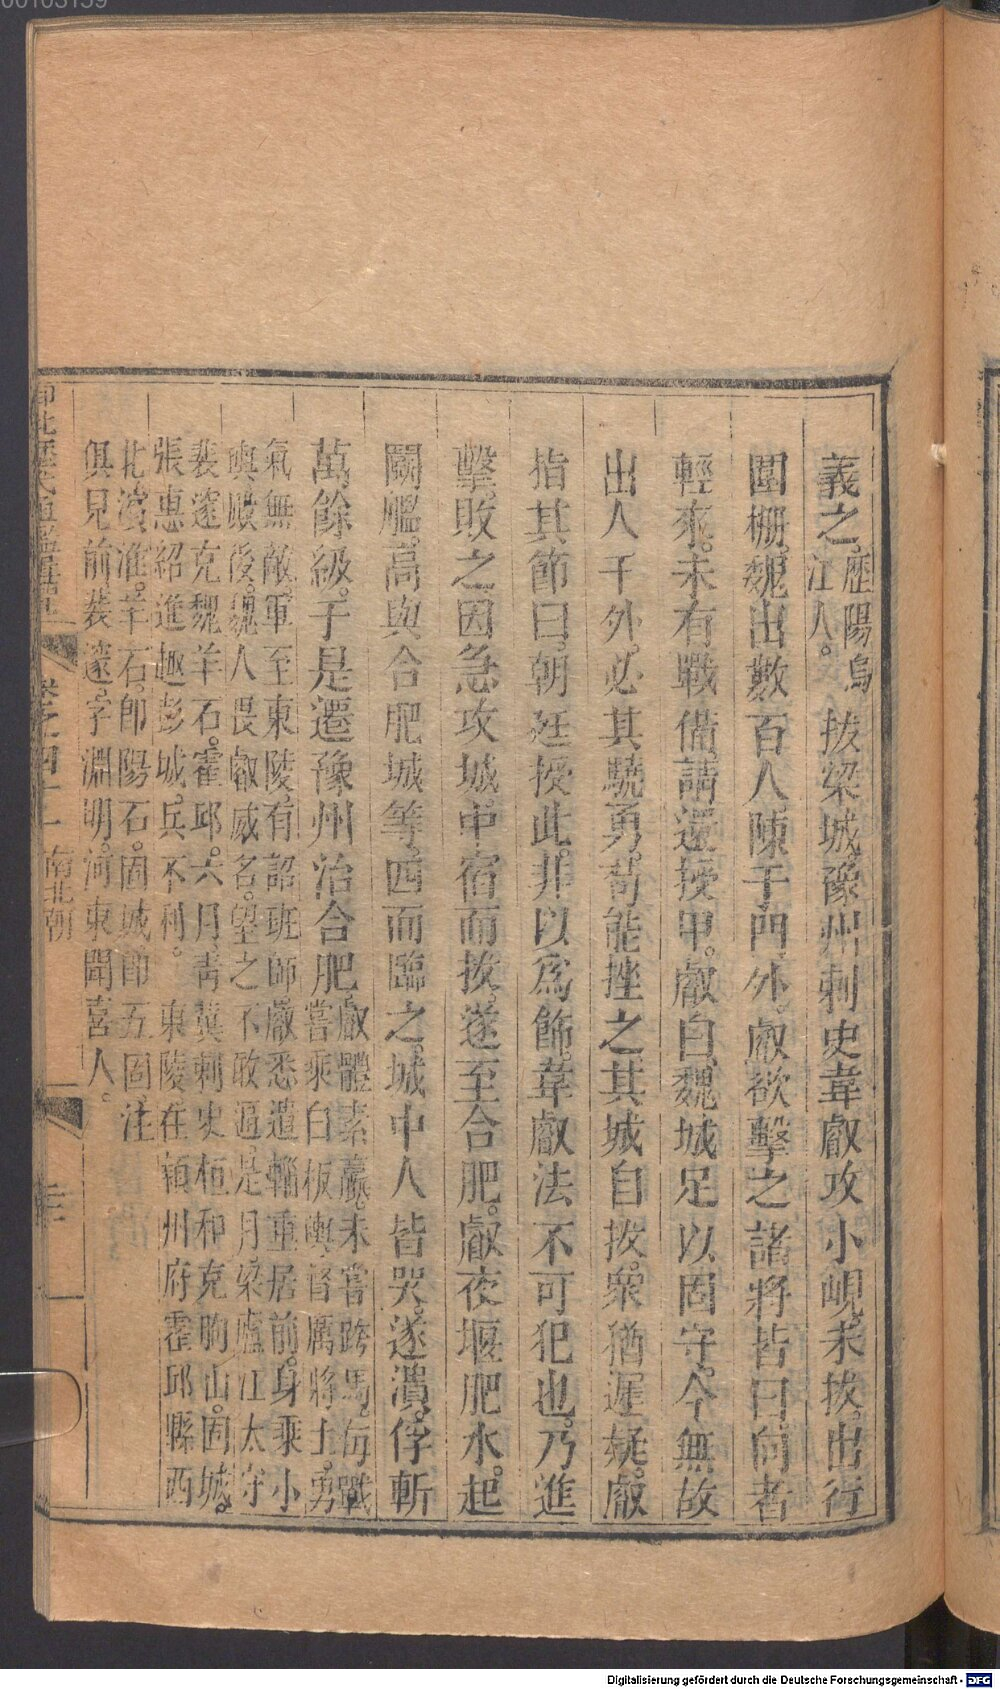 義之。歷陽烏江人。拔梁城。豫州刺史韋叡攻小峴。未拔。出行
圍柵。魏出數百人。陳于門外。叡欲擊之。諸將皆曰。向者
輕來。未有戰備。請還授甲。叡曰。魏城足以固守。今無故
出人千外。必其驍勇。苟能挫之。其城自拔。衆猶遲疑。叡
指其節曰。朝廷授此。非以爲飾。韋叡法不可犯也。乃進
擊。敗之。因急攻城。中宿而拔。遂至合肥。叡夜堰肥水。起
鬭艦。高與合肥城等。四面臨之。城中人皆哭。遂潰。俘斬
萬餘級。于是遷豫州治合肥。
叡體素羸。未嘗跨馬。每戰
嘗乘白板輿督厲將士。勇
氣無敵。軍至東陵。有詔班師。叡悉遣輜重居前。身乘小
輿殿後。魏人畏叡威名。望之不敢逼。是月。梁廬江太守
裴邃克魏羊石。霍邱。六月。青冀刺史桓和克朐山。固城。
張惠紹進趣彭城。兵不利。 東陵。在潁州府霍邱縣西
北。濱淮。羊石。卽陽石。固城。卽五固。注
俱見前。裴邃。字淵明。河東聞喜人。
卷之四十 南北朝